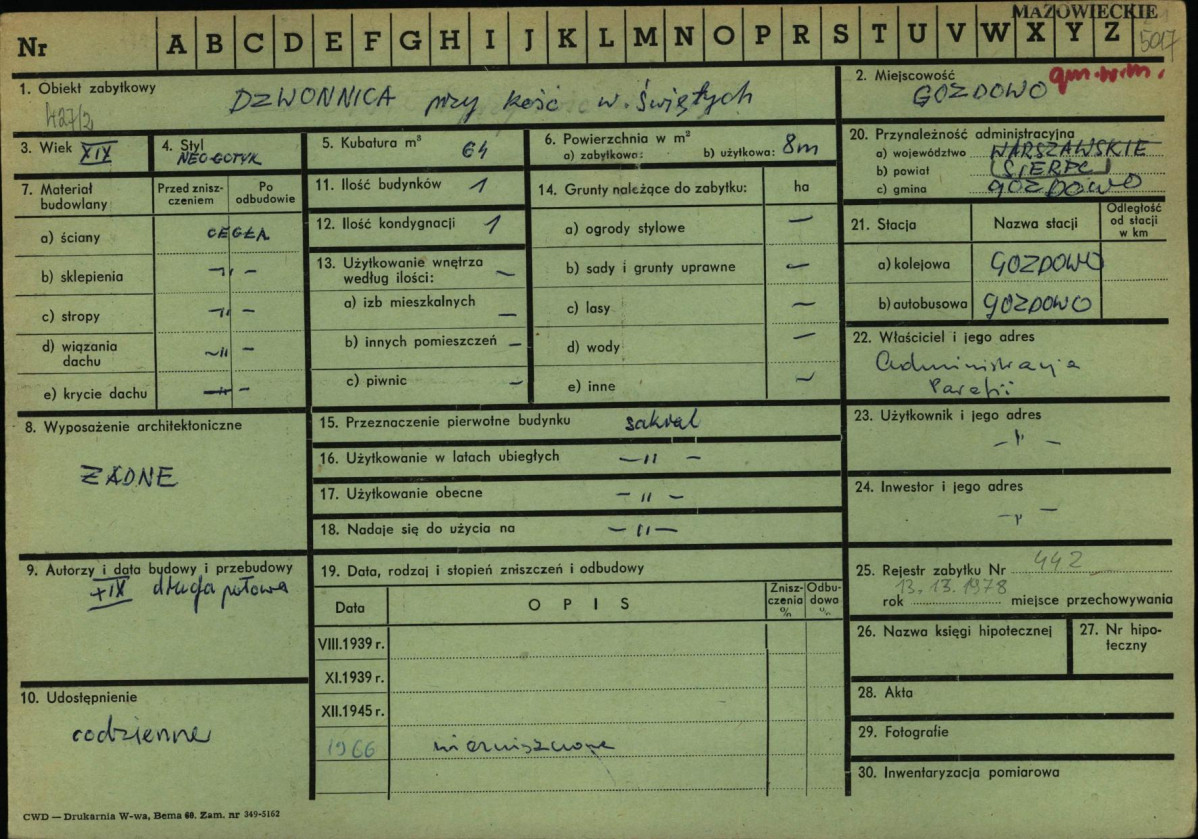 MAZOWIECKIE
Nr A B C D E F G H I J K L M N O P R S T U V W X Y Z
5017
1. Obiekt zabytkowy
DZWONNICA przy kość w. Świętych
427/2
2. Miejscowość
GOZDOWO gm.w.m.
3. Wiek XIX
4. Styl
NEOGOTYK
5. Kubatura m³ 64
6. Powierzchnia w m²
a) zabytkowa: b) użytkowa: 8m
20. Przynależność administracyjna
a) województwo WARSZAWSKIE
b) powiat (SIERPC)
c) gmina GOZDOWO
7. Materiał budowlany
Przed zniszczeniem
Po odbudowie
a) ściany CEGŁA
b) sklepienia -"-
c) stropy -"-
d) wiązania dachu -"-
e) krycie dachu -"-
11. Ilość budynków 1
12. Ilość kondygnacji 1
13. Użytkowanie wnętrza według ilości: —
a) izb mieszkalnych —
b) innych pomieszczeń —
c) piwnic —
14. Grunty należące do zabytku: ha
a) ogrody stylowe —
b) sady i grunty uprawne —
c) lasy —
d) wody —
e) inne —
21. Stacja
Nazwa stacji
Odległość od stacji w km
a) kolejowa GOZDOWO
b) autobusowa GOZDOWO
22. Właściciel i jego adres
Administracja
Parafii
8. Wyposażenie architektoniczne
ŻADNE
15. Przeznaczenie pierwotne budynku sakral
16. Użytkowanie w latach ubiegłych -"-
17. Użytkowanie obecne -"-
18. Nadaje się do użycia na -"-
23. Użytkownik i jego adres
-"-
24. Inwestor i jego adres
-"-
9. Autorzy i data budowy i przebudowy
XIX druga połowa
19. Data, rodzaj i stopień zniszczeń i odbudowy
Data
OPIS
Zniszczenia %
Odbudowa %
VIII.1939 r.
XI.1939 r.
XII.1945 r.
1966 niezniszczona
25. Rejestr zabytku Nr 442
13. 13. 1978
rok miejsce przechowywania
26. Nazwa księgi hipotecznej
27. Nr hipoteczny
10. Udostępnienie
codzienne
28. Akta
29. Fotografie
30. Inwentaryzacja pomiarowa
CWD — Drukarnia W-wa, Bema 60. Zam. nr 349-5162